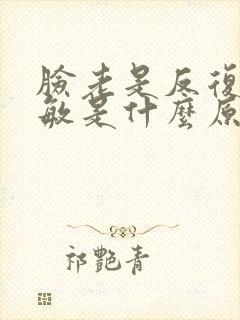 臉老是反復
敏是什麼原
祁艷青